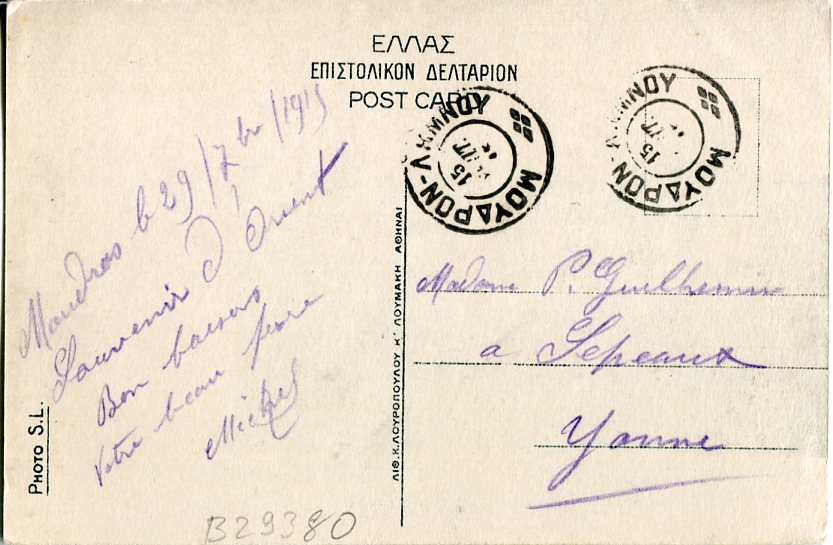 ΕΛΛΑΣ
ΕΠΙΣΤΟΛΙΚΟΝ ΔΕΛΤΑΡΙΟΝ
POST CARD
Moudros le 29/7bre/1915
Souvenir d'Orient
Bon baisers
Votre beau frere
Michel
PHOTO S.L.
ΛΙΘ. Κ. ΛΟΥΡΟΠΟΥΛΟΥ Κ' ΛΟΥΜΑΚΗ ΑΘΗΝΑΙ
ΜΟΥΔΡΟΝ-ΛΗΜΝΟΥ
15
ΜΟΥΔΡΟΝ-ΛΗΜΝΟΥ
15
Madame P. Guilhemin
a Sepeaux
Yonne
B29380